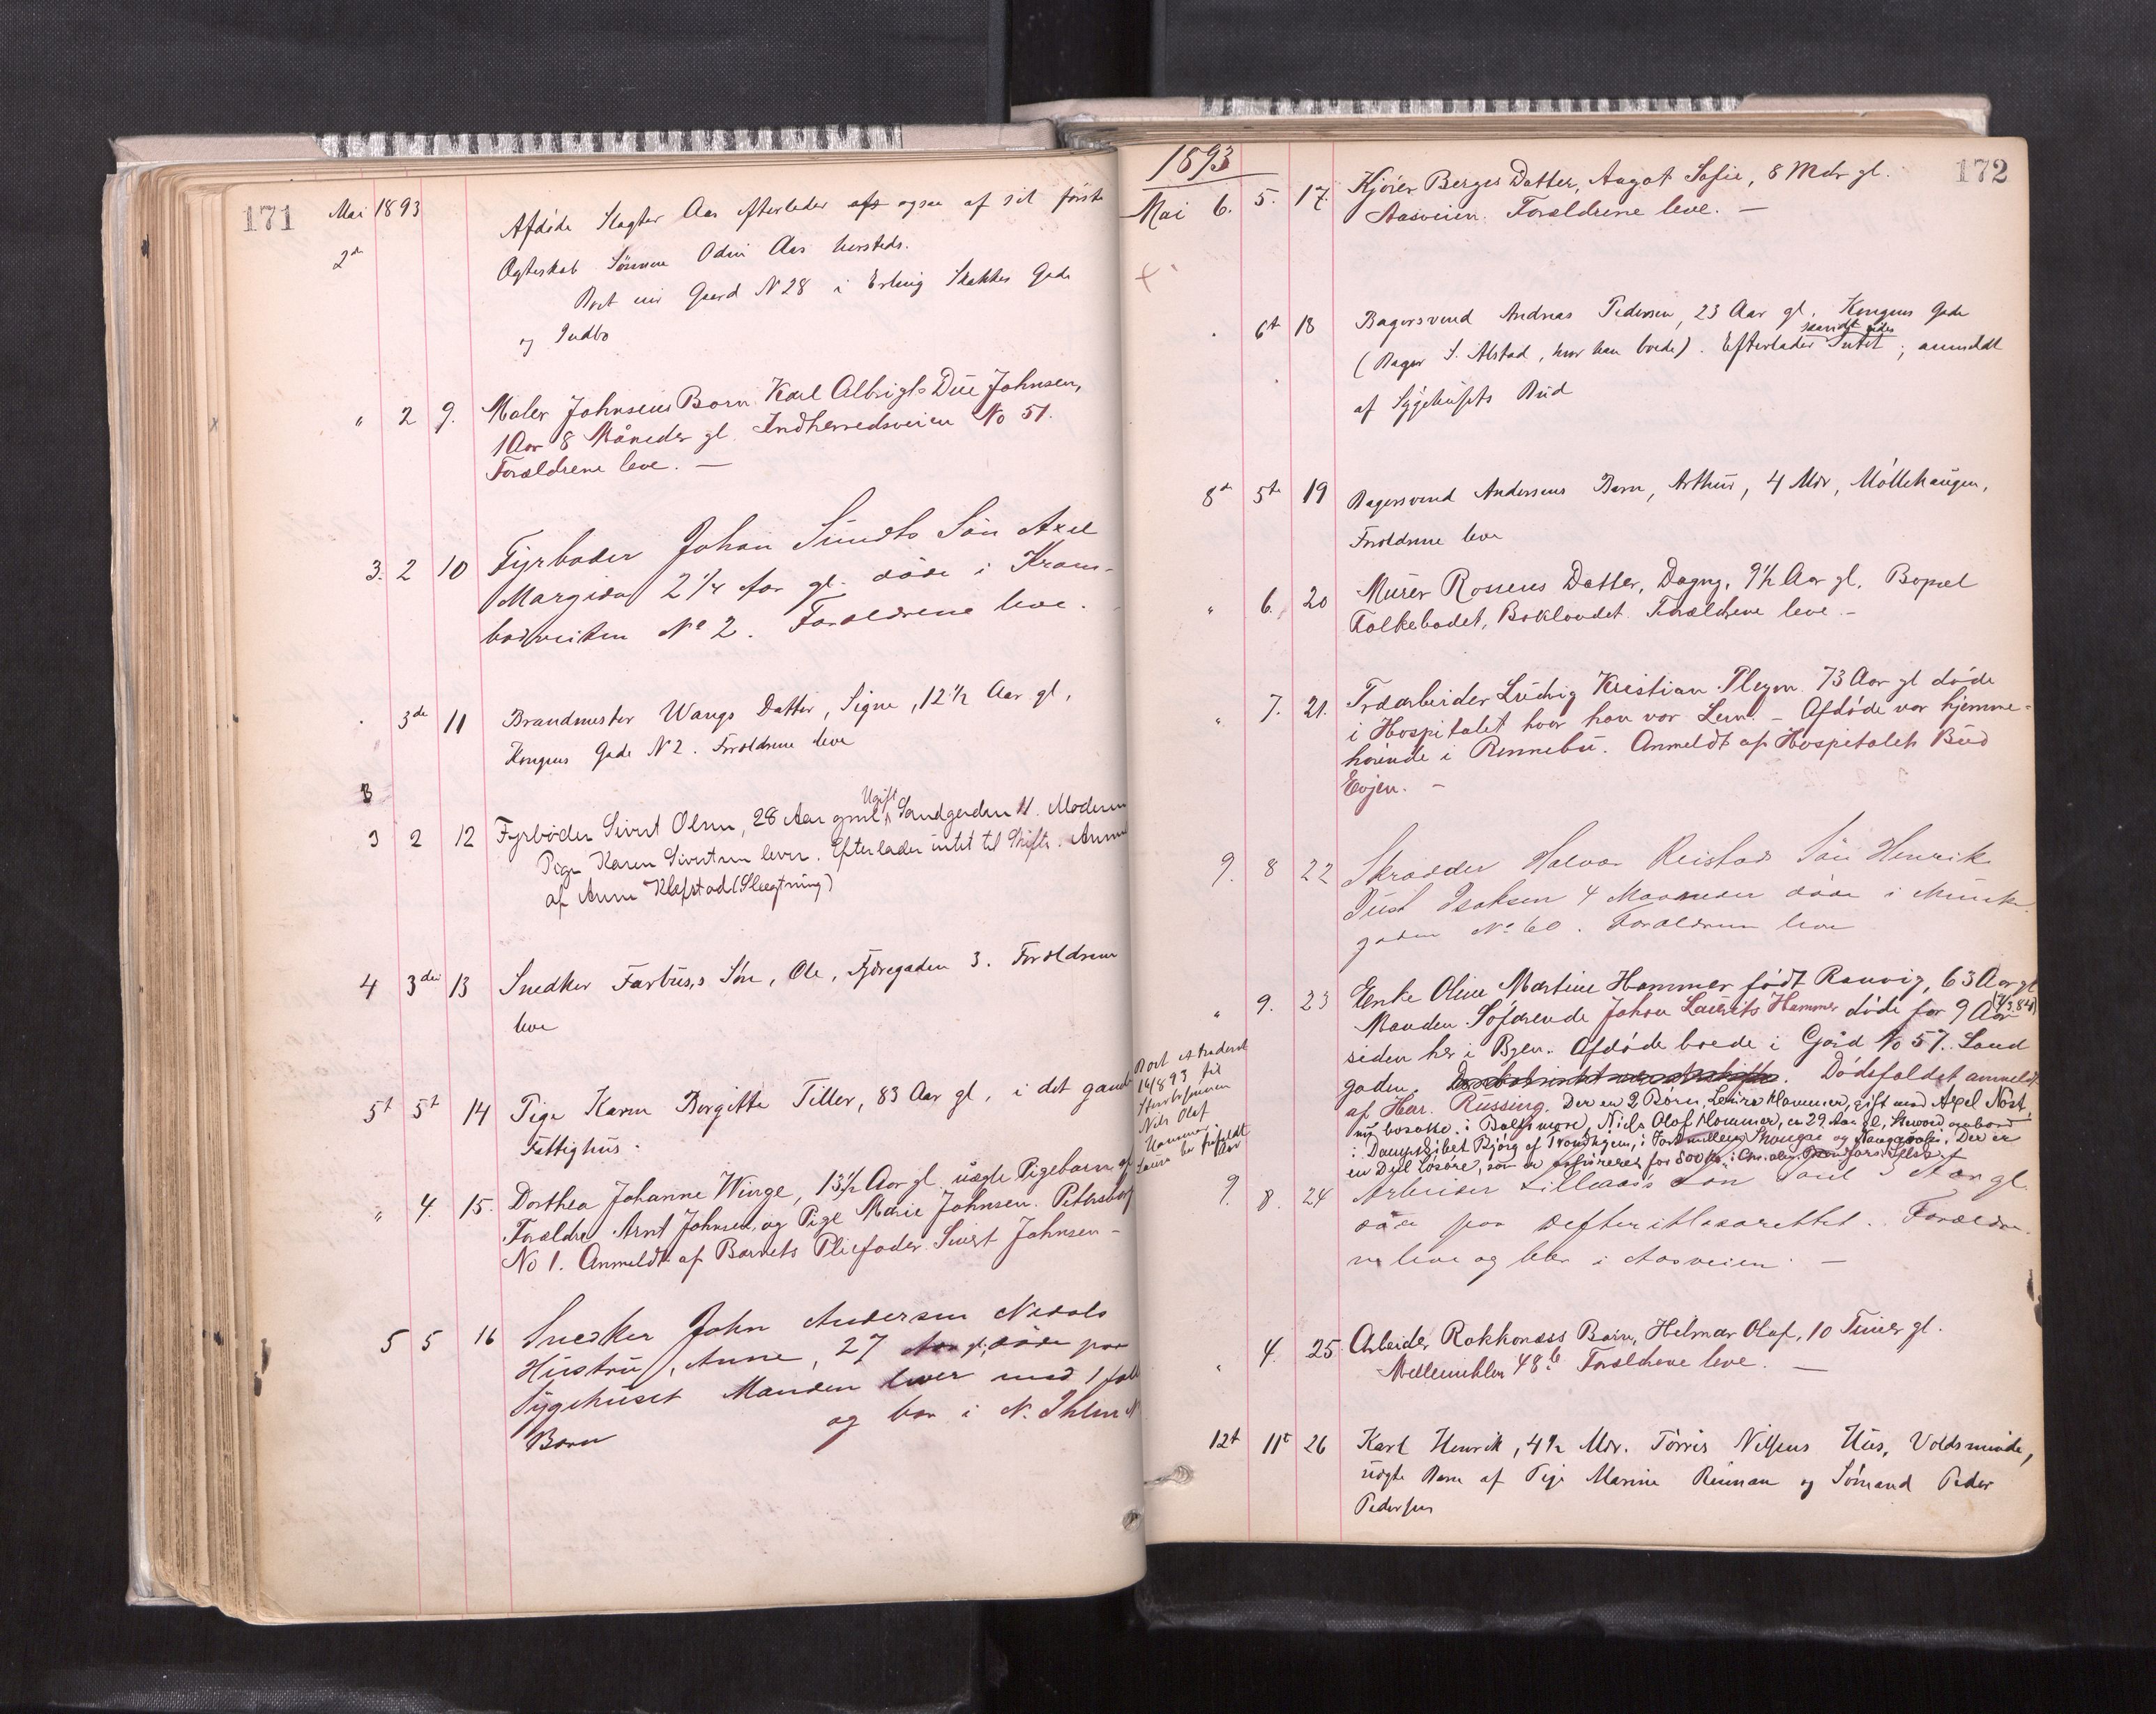 171 Mai 1893
2de Afdøde Slagter Aas efterlader også af sit første
Ægteskab Sønnen Odin Aas hersteds.
Boet eier Gaard N 28 i Erling Skakkes Gade
og Indbo
" 2 9. Maler Johnsens Barn Karl Albrigts Due Johnsen,
1 Aar 8 Måneder gl. Indherredsveien No 51.
Forældrene leve. —
3. 2 10 Fyrbøder Johan Sundts Søn Axel
Margido 2 1/4 Aar gl. døde i Kram-
bodveiten No 2. Forældrene leve.
3de 11 Brandmester Wangs Datter, Signe, 12 1/2 Aar gl,
Kongens Gade N 2. Forældrene leve
3 2 12 Fyrbøder Sivert Olsen, 28 Aar gml, Ugift Sandgaden 11. Moderen
Pige Karen Sivertsen lever. Efterlader intet til Skifte. Anm
af Anne Klefstad (Slegtning)
4 3die 13 Snedker Farbus,s Søn, Ole, Fjæregaden 3. Forældrene
leve
5t 5t 14 Pige Karen Birgitte Tiller, 83 Aar gl, i det gamle
Fattighus.
" 4. 15. Dorthea Johanne Winge, 13 1/2 Aar gl. uægte Pigebarn af
Forældre Arnt Johnsen, og Pige Marie Johnsen. Petersborg
No 1. Anmeldt af Barnets Pliefader Sivert Johnsen -
5 5 16 Snedker John Andersen Nedals
Hustru, Anne, 27 Aar gl, døde paa
Sygehuset Manden lever med 1 fælles
Barn og bor i N. Ihlen N
1893 172
Mai 6. 5. 17. Kjører Berges Datter, Aagot Sofie, 8 Mdr gl.
Aasveien. Forældrene leve. —
6t 18 Bagersvend Andreas Pedersen, 23 Aar gl. Kongens Gade
(Bager S. Alstad, hvor han boede). Efterlader Intet; anmeldt
af Sygehusets Bud
8d 5te 19 Bagersvend Andersens Barn, Arthur, 4 Mdr, Møllehaugen,
Forældrene leve
" 6. 20 Murer Rosens Datter, Dagny, 9 1/2 Aar gl. Bopæl
Folkebadet, Baklandet. Forældrene leve. -
" 7. 21. Træarbeider Ludvig Kristian Plegen 73 Aar gl døde
i Hospitalet hvor han var Lem. - Afdøde var hjemme-
hørende i Rennebu. Anmeldt af Hospitalets Bud
Evjen. -
9. 8 22 Skrædder Halvor Reistads Søn Henrik
Just Isaksen 4 Maaneder døde i Munke
gaden No 60. Forældrene leve
" 9. 23 Enke Oline Martine Hammer født Ranvig, 63 Aar gl
Manden Søfarende Johan Laurits Hammer døde for 9 Aar
siden her i Byen. Afdøde boede i Gård No 57. Sand
gaden. Dødsfaldet anmeldt
af Har. Russing. Der er 2 Børn, Laura Hammer, gift med Axel Nøst,
nu bosatte i Baltimore, Niels Olaf Hammer, ca 29 Aar gl, Steward ombord
i Dampskibet Bjørg af Trondhjem, i Fart mellem Shangae og Nangasaki. Der er
en Del Løsøre, som er assureret for 800 Kr i Chr. alm. Brandfors. Selsk.
Boet extraderet
14/8 93 til
Stervbosønnen
Nils Olaf
Hammer.
9. 8. 24 Arbeider Lilleaas Søn Paul 3 Aar gl.
døde paa Defteritlasarettet. Forældre
ne leve og bor i Aasveien. —
" 4. 25. Arbeider Rokkonæss Barn, Helmar Olaf, 10 Timer gl.
Mellemihlen 48b Forældrene leve. —
12t 11t 26 Karl Henrik, 4 1/2 Mdr. Tørris Nilsens Hus, Voldsminde,
uægte Barn af Pige Marine Reinan og Sømand Peder
Pedersen